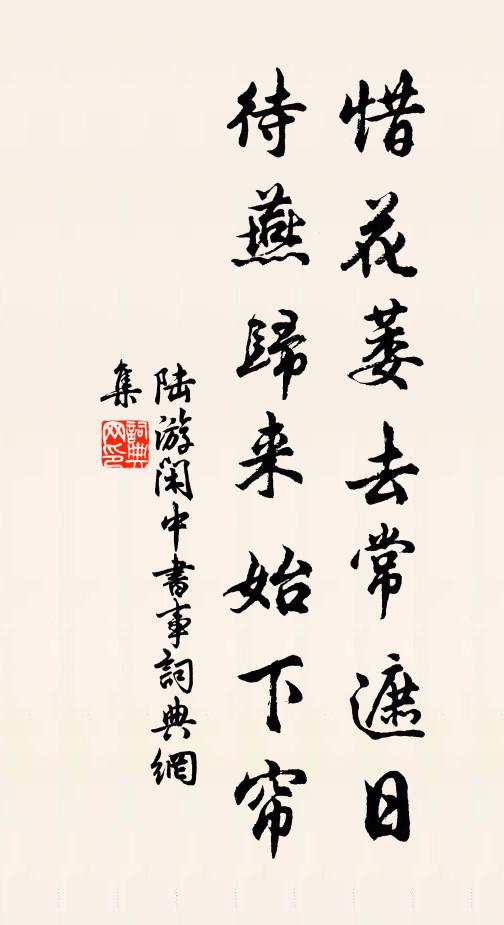 惜花萎去常遮日
待燕歸来始下帘
陆游闲中書事詞典網
集
詞典网印